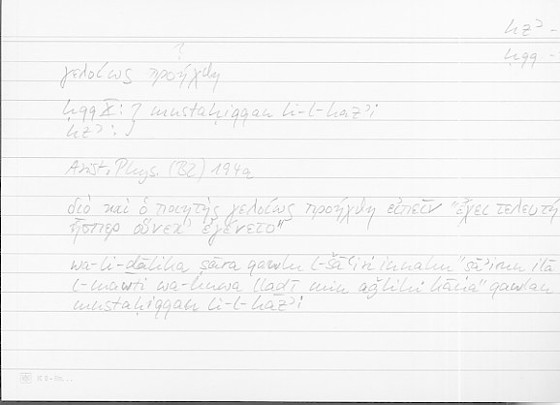 hzʾ -
ḥqq -
?
γελοίως προήχθη
ḥqq X: } mustaḥiqqan li-l-hazʾi
hzʾ: }
Arist. Phys. (B2) 194a
διὸ καὶ ὁ ποιητὴς γελοίως προήχθη εἰπεῖν "ἔχει τελευτή
ἧσπερ οὕνεκ' ἐγένετο"
wa-li-ḏālika ṣāra qawlu l-šāʿiri innahu ilā
l-mawti wa-huwa llaḏī min aǧlihi kāna" qawlan
mustaḥiqqan li-l-hazʾi